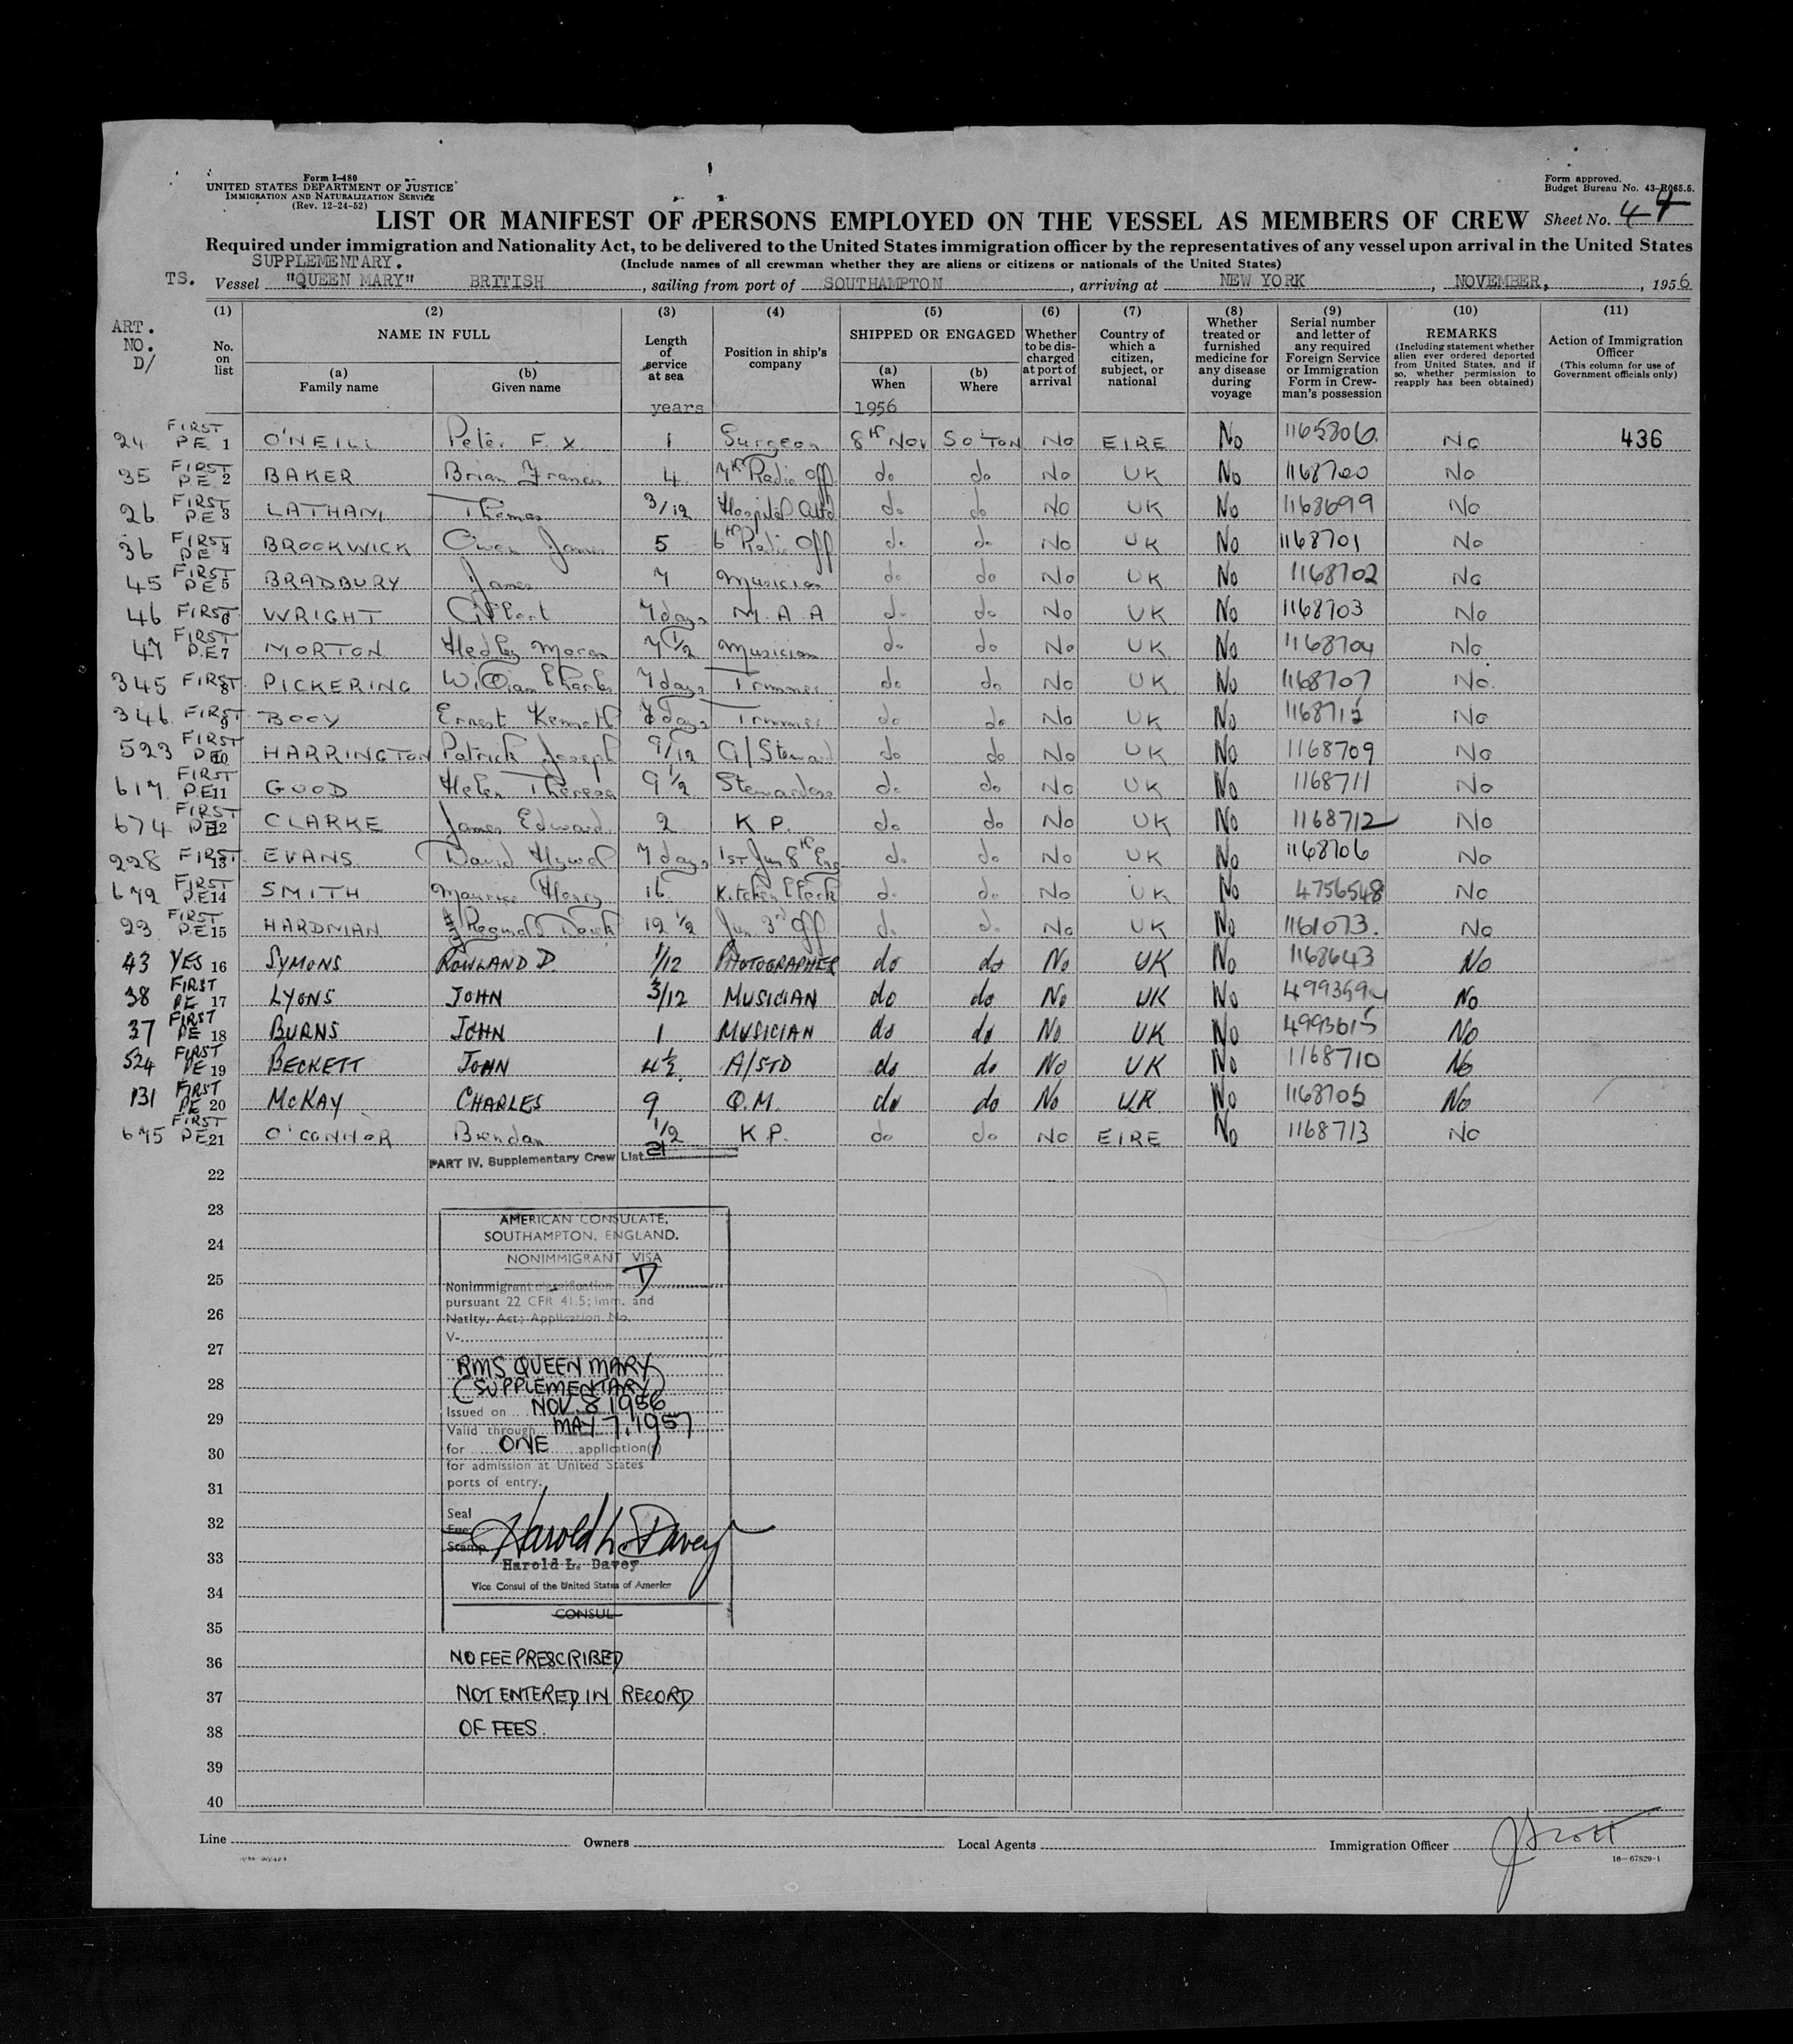 Form I-480
UNITED STATES DEPARTMENT OF JUSTICE
IMMIGRATION AND NATURALIZATION SERVICE
(Rev. 12-24-52)
Form approved.
Budget Bureau No. 43-R065.5.
LIST OR MANIFEST OF PERSONS EMPLOYED ON THE VESSEL AS MEMBERS OF CREW Sheet No. 44
Required under immigration and Nationality Act, to be delivered to the United States immigration officer by the representatives of any vessel upon arrival in the United States
SUPPLEMENTARY. (Include names of all crewman whether they are aliens or citizens or nationals of the United States)
TS. Vessel "QUEEN MARY" BRITISH, sailing from port of SOUTHAMPTON, arriving at NEW YORK, NOVEMBER, 1956
ART. NO. D/
(1) No. on list
(2) NAME IN FULL
(a) Family name
(b) Given name
(3) Length of service at sea
years
(4) Position in ship's company
(5) SHIPPED OR ENGAGED
(a) When
1956
(b) Where
(6) Whether to be discharged at port of arrival
(7) Country of which a citizen, subject, or national
(8) Whether treated or furnished medicine for any disease during voyage
(9) Serial number and letter of any required Foreign Service or Immigration Form in Crewman's possession
(10) REMARKS
(Including statement whether alien ever ordered deported from United States, and if so, whether permission to reapply has been obtained)
(11) Action of Immigration Officer
(This column for use of Government officials only)
24 FIRST PE 1 O'NEILL Peter F. X. 1 Surgeon 8th Nov SO'TON No EIRE No 1165806. No 436
35 FIRST PE 2 BAKER Brian Francis 4. 7th Radio Off. do do No UK No 1168700 No
26 FIRST PE 3 LATHAM Thomas 3/12 Hospital Attd do do No UK No 1168699 No
36 FIRST PE 4 BROOKWICK Owen James 5 6th Radio Off do do No UK No 1168701 No
45 FIRST PE 5 BRADBURY James 7 Musician do do No UK No 1168702 No
46 FIRST 6 WRIGHT Albert 7 days M.A.A do do No UK No 1168703 No
47 FIRST P.E 7 MORTON Hedley 7 1/2 Musician do do No UK No 1168704 No
345 FIRST 8 PICKERING William Charles 7 days Trimmer do do No UK No 1168707 No.
346 FIRST 9 Ernest Kenneth days Trimmer do do No UK No No
523 FIRST PE 10 HARRINGTON Patrick Joseph 9/12 A/Steward do do No UK No 1168709 No
617 FIRST P.E 11 GOOD Helen Theresa 9 1/2 Stewardess do do No UK No 1168711 No
674 FIRST PE 12 CLARKE James Edward 2 K P. do do No UK No 1168712 No
228 FIRST 13 EVANS David Hywel 7 days 1ST Jun 8th Eng do do No UK No 1168706 No
672 FIRST P.E 14 SMITH Maurice Henry 16 Kitchen Clerk do do No UK No 4756548 No
23 FIRST P.E 15 HARDMAN Reginald 12 1/2 Jun 3rd Off do do No UK No 1161073. No
43 YES 16 SYMONS ROWLAND D. 1/12 PHOTOGRAPHER do do No UK No 1168643 No
38 FIRST PE 17 LYONS JOHN 3/12 MUSICIAN do do No UK No 4993594 No
37 FIRST PE 18 BURNS JOHN 1 MUSICIAN do do No UK No 4993615 No
524 FIRST PE 19 BECKETT JOHN 4 1/2. A/STD do do No UK No 1168710 No
131 FIRST PE 20 McKAY CHARLES 9 Q.M. do do No UK No 1168705 No
675 FIRST PE 21 O'CONNOR Brendan 1/2 K P. do do No EIRE No 1168713 No
PART IV. Supplementary Crew List 21
22
23
AMERICAN CONSULATE,
SOUTHAMPTON, ENGLAND.
24
NONIMMIGRANT VISA
25
Nonimmigrant classification D
pursuant 22 CFR 41.5; Imm. and
26
Natlty. Act; Application No.
V-
27
RMS QUEEN MARY
28
(SUPPLEMENTARY)
Issued on NOV. 8 1956
29
Valid through MAY 7, 1957
for ONE application(s)
30
for admission at United States
ports of entry.
31
Seal
32
Fee
Stamp
Harold L. Davey
33
Harold L. Davey
34
Vice Consul of the United States of America
CONSUL
35
36 NO FEE PRESCRIBED
37 NOT ENTERED IN RECORD
38 OF FEES.
39
40
Line Owners Local Agents Immigration Officer J Scott
16—67829-1